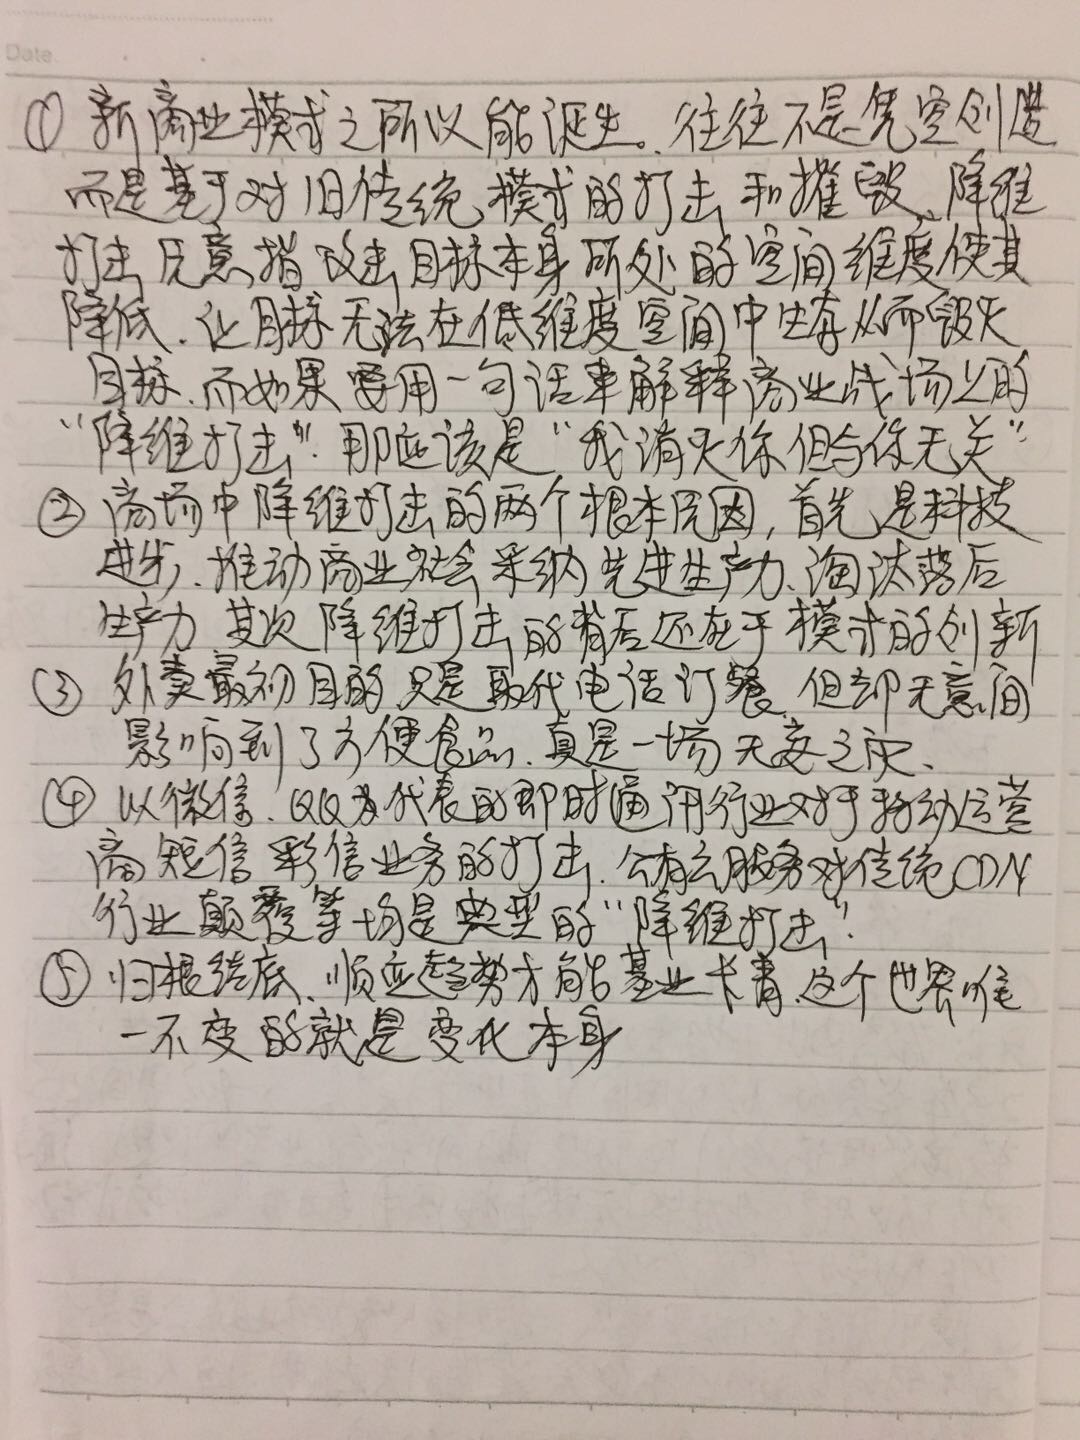 Date
① 新商业模式之所以能诞生。往往不是凭空创造
而是基于对旧传统模式的打击和摧毁、降维
打击 原意指攻击目标本身所处的空间维度使其
降低、让目标无法在低维度空间中生存从而毁灭
目标、而如果要用一句话来解释商业战场上的
“降维打击”. 那应该是“我消灭你但与你无关”
② 商场中降维打击的两个根本原因, 首先是科技
进步、推动商业社会采纳先进生产力、淘汰落后
生产力 其次 降维打击的背后还在于模式的创新
③ 外卖最初目的只是取代电话订餐、但却无意间
影响到了方便食品、真是一场无妄之灾、
④ 以微信、QQ为代表的即时通讯行业对于移动运营
商短信彩信业务的打击、公有云服务对传统CDN
行业颠覆等均是典型的“降维打击”.
⑤ 归根结底、顺应趋势才能基业长青、这个世界唯
一不变的就是变化本身